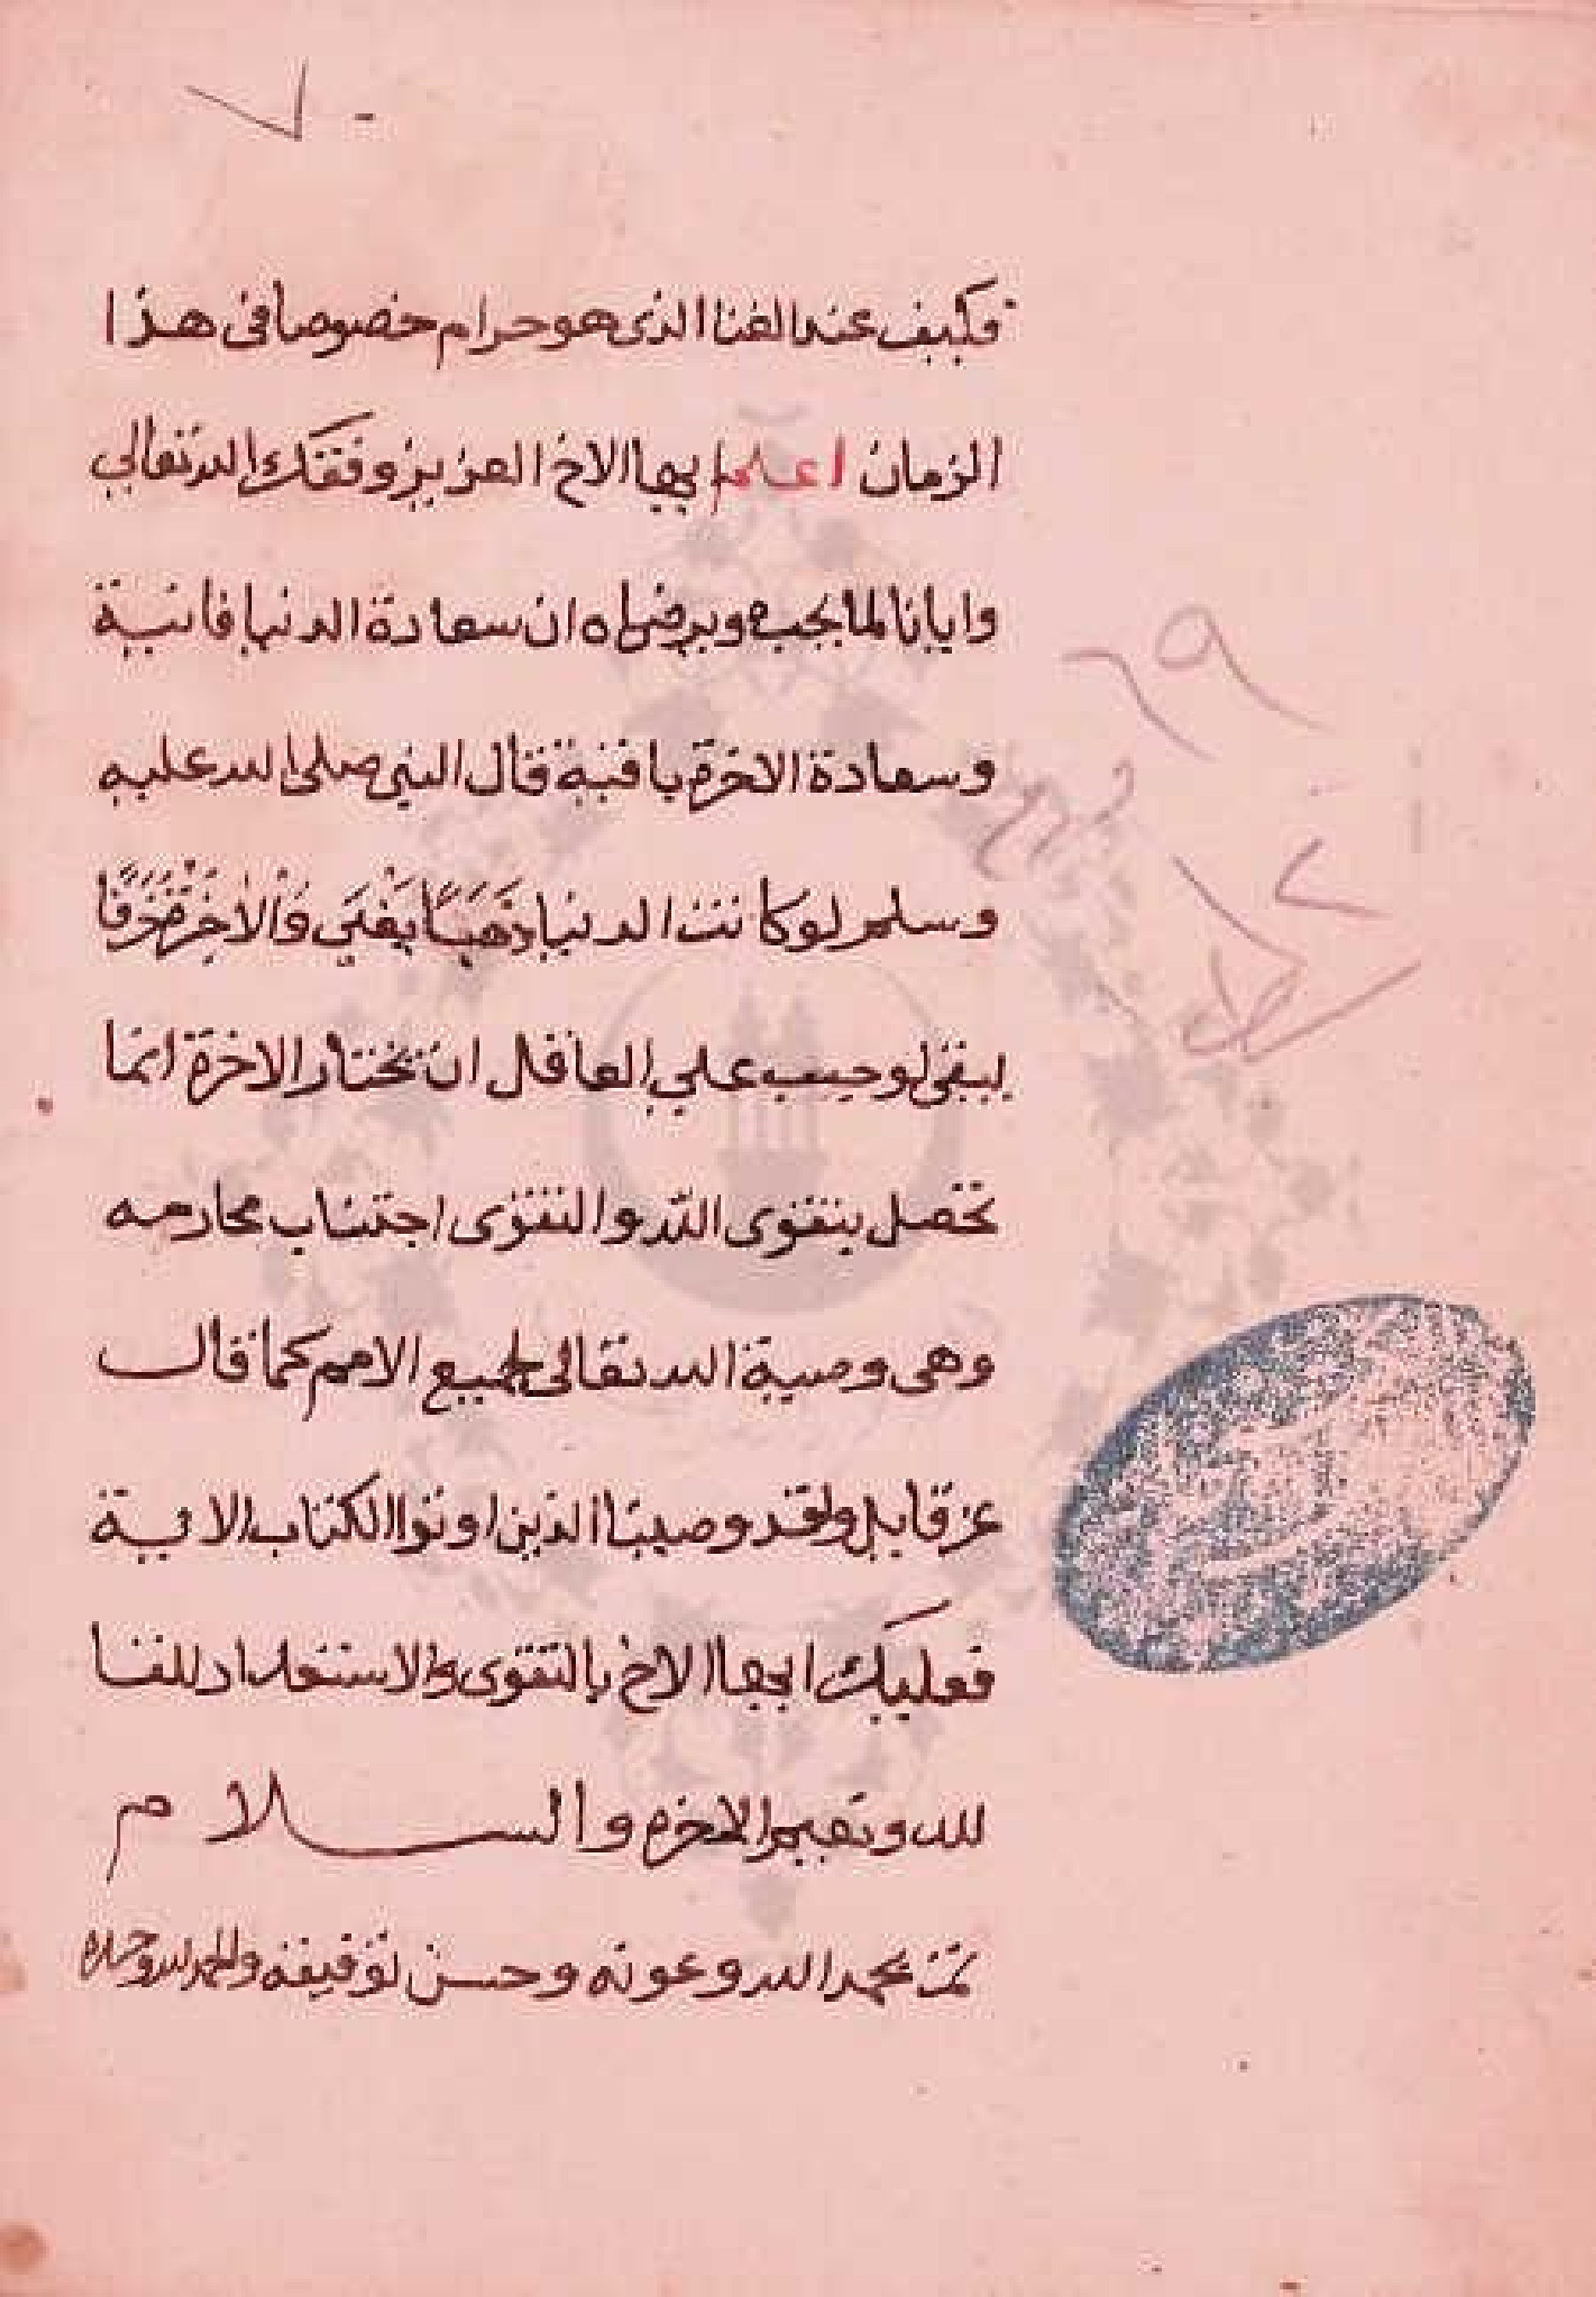 فكيف عند الغنا الذى هو حرام خصوصا فى هذا
الزمان اعلم ايها الاخ العزيز وفقك الله تعالي
وايانا لما يحبه ويرضاه ان سعادة الدنيا فانية
وسعادة الاخرة باقية قال النبى صلى الله عليه
وسلم لو كانت الدنيا ذَهَبًا يَفْنَي وَالْاخِرَةُ خَزَفًا
يبقى لوجب علي العاقل ان يختار الاخرة انما
تحصل بتقوى الله والتقوى اجتناب محارمه
وهى وصية الله تعالى لجميع الامم كما قال
عز قايل ولقد وصينا الذين اوتوا الكتاب الاية
فعليك ايها الاخ بالتقوى والاستعداد للقا
الله ونعيم الاخرة والسلام
تمت بحمد الله وعونه وحسن توفيقه والحمد لله وحده